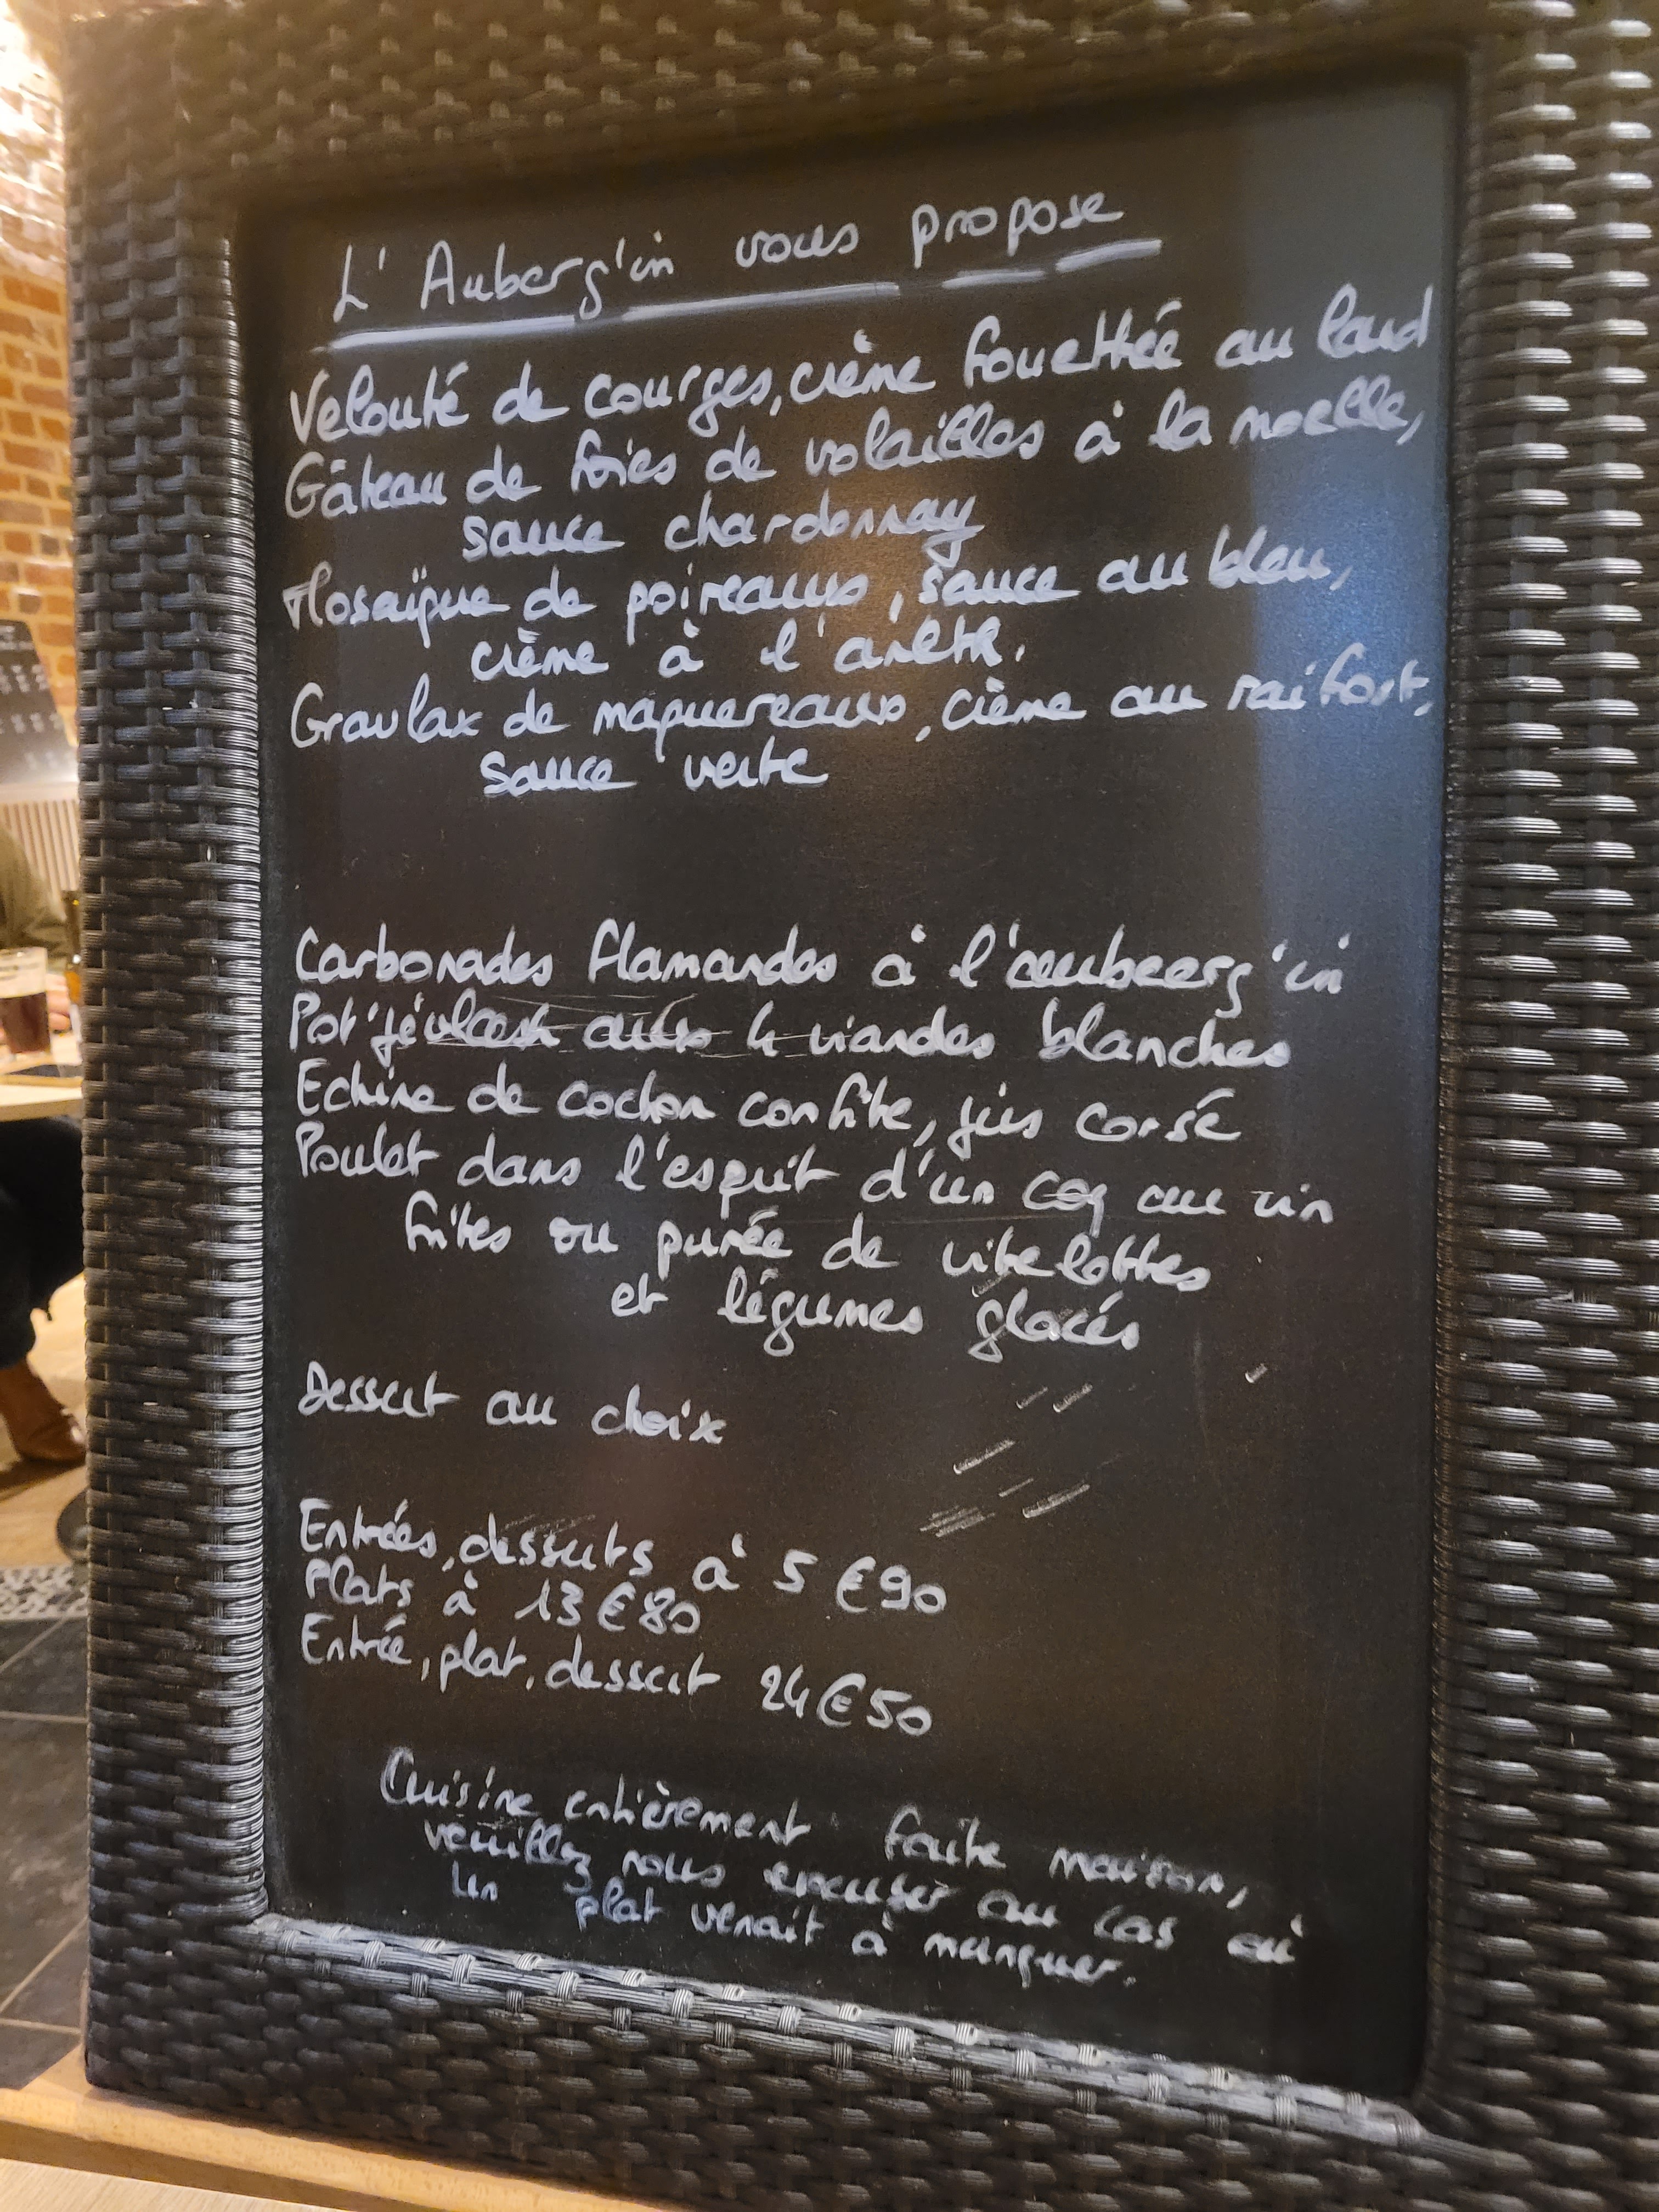 L'Auberg'in vous propose
Velouté de courges, crème fouettée au lard
Gâteau de foies de volailles à la moelle,
sauce chardonnay
Mosaïque de poireaux, sauce au bleu,
crème à l'anèth.
Gravlax de maquereaux, crème au raifort,
sauce verte
Carbonades flamandes à l'aubeerg'in
Pot'je vleesh aux 4 viandes blanches
Echine de cochon confite, jus corsé
Poulet dans l'esprit d'un coq au vin
frites ou purée de vitelottes
et légumes glacés
Dessert au choix
Entrées, desserts à 5€90
Plats à 13€80
Entrée, plat, dessert 24€50
Cuisine entièrement faite maison,
veuillez nous excuser au cas où
un plat venait à manquer.